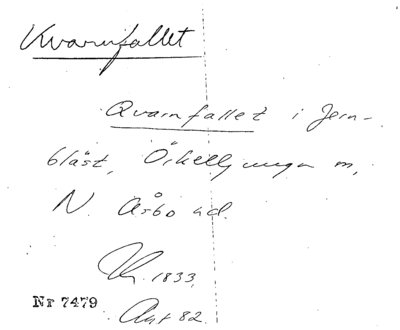 Kvarnfallet
Qvarnfallet i Jern-
bläst, Örkelljunga m,
N. Åsbo hd.
1833.
Nr 7479
Akt 82.